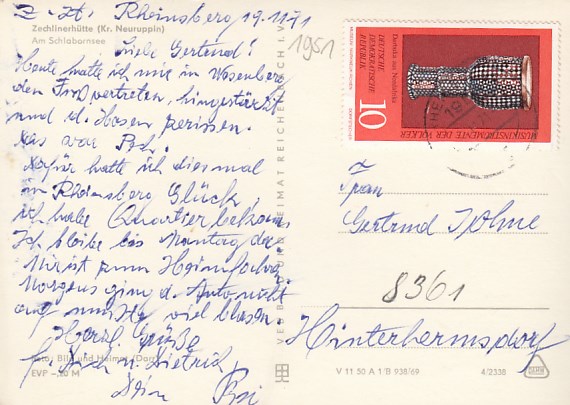 Z. Zt. Rheinsberg 19.11.71
Zechlinerhütte (Kr. Neuruppin)
Am Schlabornsee
Liebe Gertrud!
Heute hatte ich mir in
den Fuß vertreten, hingestürzt
und d. Hosen zerissen.
Das war Pech!
Dafür hatte ich diesmal
in Rheinsberg Glück,
ich habe Quartier bekommen
Ich bleibe bis Montag
Mir ist zum
Morgens ging d. Auto nicht
auf mußte viel blasen.
Herzl. Grüße
Dietrich
Dein
Foto: Bild und Heimat
EVP
VERLAG BILD UND HEIMAT REICHENBACH I. V.
1951
Darbuka aus Nordafrika
DEUTSCHE
DEMOKRATISCHE
REPUBLIK
10
MUSIKINSTRUMENTE DER VÖLKER
Frau
Gertrud
8361
Hinterhermsdorf
V 11 50 A 1/B 938/69
4/2338